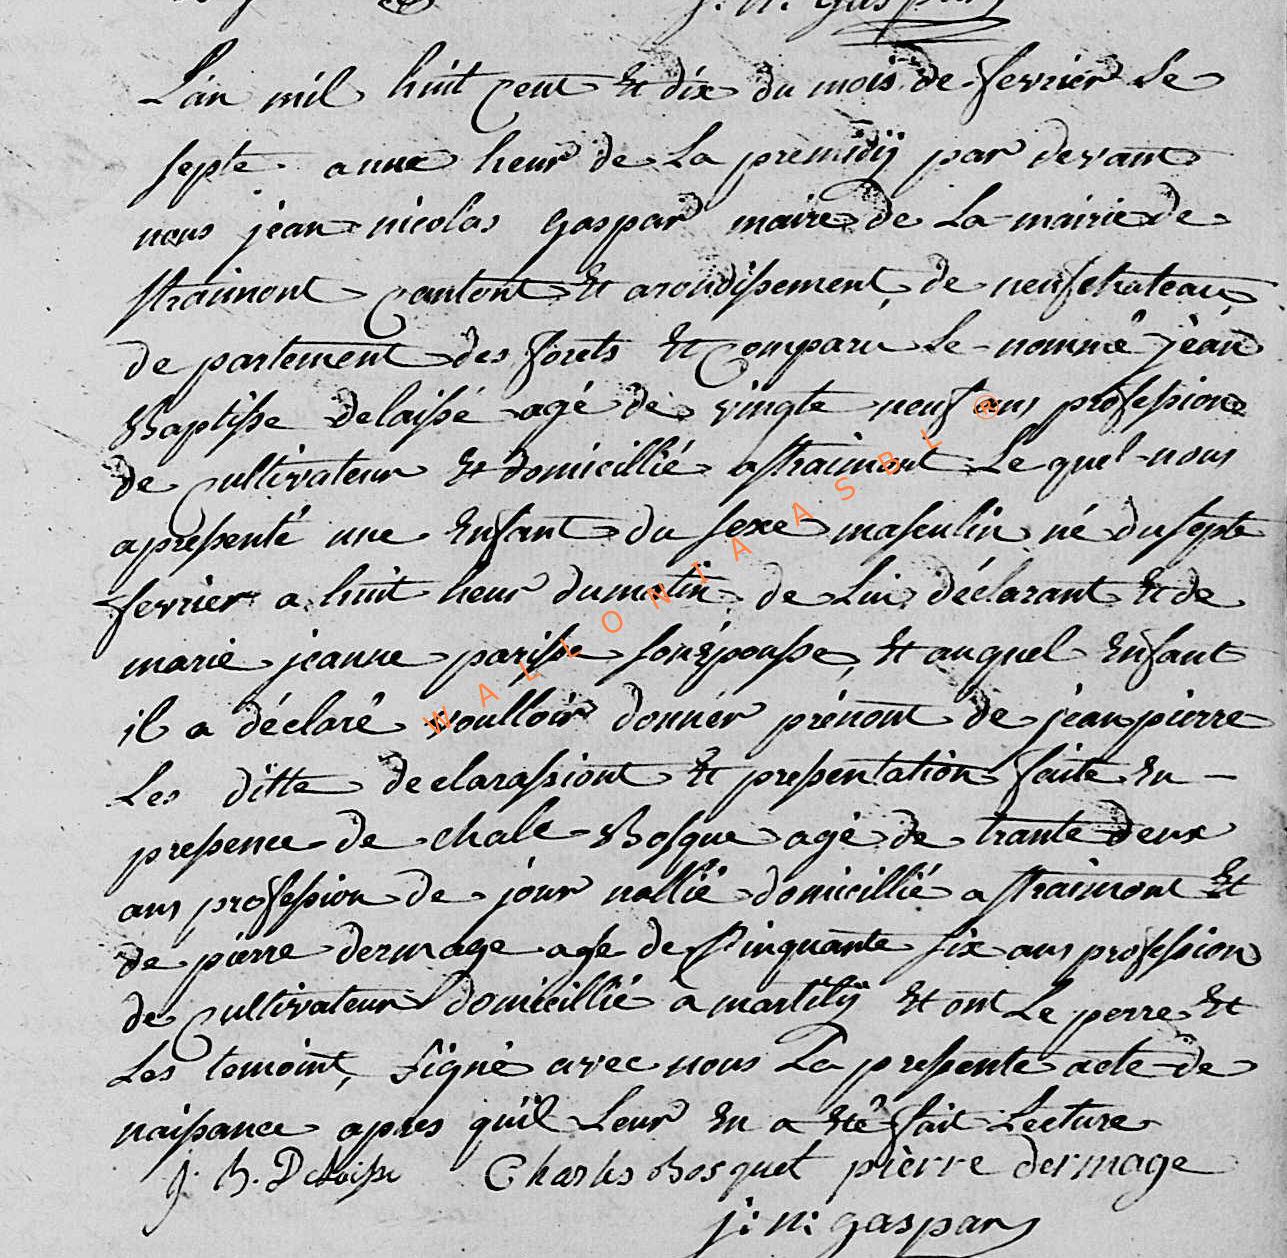 j. n. gaspar
L'an mil huit cent et dix du mois de fevrier le
septe a une heur de la premidÿ par devant
nous jean nicolas gaspar maire de la mairie de
straimont cantont et arondissement de neufchateau
de partement des forets et comparu le nommé jéan
Baptisse delaissé agé de vingte neuf ans profession
de cultivateur et domicillié a straimont le quel nous
a pressenté une enfant du sexe masculin né du septe
fevrier a huit heur du matin de lui déclarant et de
marie jeanne parisse son épousse et auquel enfant
il a déclaré voulloir donnér prénont de jean pierre
Les ditte declarassiont et pressentation faite en
pressence de chale Bosque agé de trante deux
ans profession de jour nallié domicillié a straimont et
de pierre dermage age de cinquante six ans profession
de cultivateur domicillié a martilÿ et ont le perre et
les temoint, signé avec nous la pressente acte de
naissance apres qu'il leur en a été fait lecture
J. B. Delaisse Charles Bosquet pièrre dermage
j: n: gaspar
WALLONIA ASBL ®